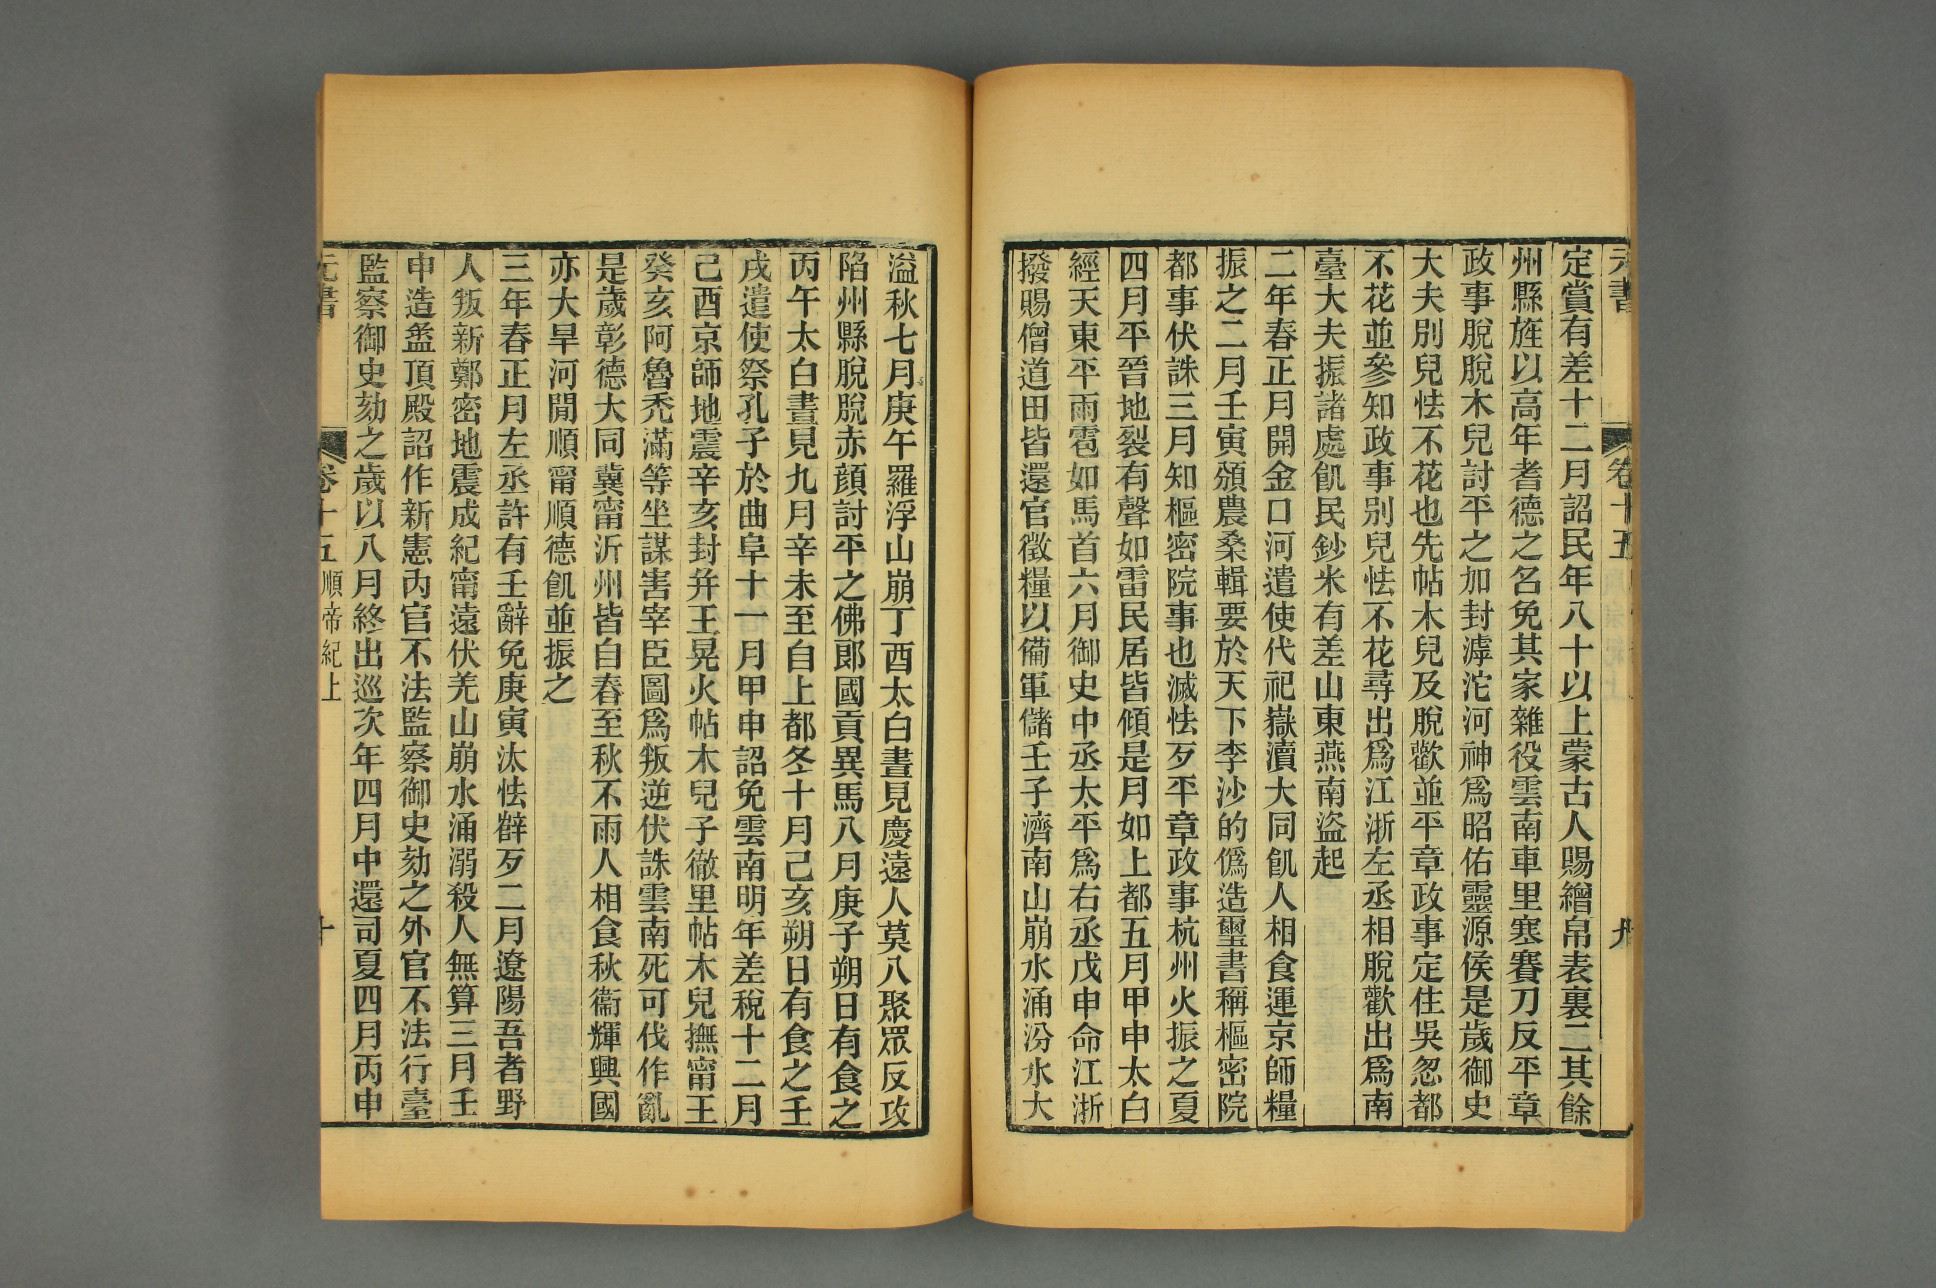 元書
卷十五
九
定賞有差十二月詔民年八十以上蒙古人賜繒帛表裏二其餘
州縣旌以高年耆德之名免其家雜役雲南車里寒賽刀反平章
政事脫脫木兒討平之加封滹沱河神爲昭佑靈源侯是歲御史
大夫別兒怯不花也先帖木兒及脫歡並平章政事定住吳忽都
不花並參知政事別兒怯不花尋出爲江浙左丞相脫歡出爲南
臺大夫振諸處飢民鈔米有差山東燕南盜起
二年春正月開金口河遣使代祀嶽瀆大同飢人相食運京師糧
振之二月壬寅頒農桑輯要於天下李沙的僞造璽書稱樞密院
都事伏誅三月知樞密院事也滅怯歹平章政事杭州火振之夏
四月平晉地裂有聲如雷民居皆傾是月如上都五月甲申太白
經天東平雨雹如馬首六月御史中丞太平爲右丞戊申命江浙
撥賜僧道田皆還官徵糧以備軍儲壬子濟南山崩水涌汾水大
溢秋七月庚午羅浮山崩丁酉太白晝見慶遠人莫八聚眾反攻
陷州縣脫脫赤顔討平之佛郎國貢異馬八月庚子朔日有食之
丙午太白晝見九月辛未至自上都冬十月己亥朔日有食之壬
戌遣使祭孔子於曲阜十一月甲申詔免雲南明年差稅十二月
己酉京師地震辛亥封幷王晃火帖木兒子徹里帖木兒撫甯王
癸亥阿魯禿滿等坐謀害宰臣圖爲叛逆伏誅雲南死可伐作亂
是歲彰德大同冀甯沂州皆自春至秋不雨人相食秋衞輝興國
亦大旱河閒順甯順德飢並振之
三年春正月左丞許有壬辭免庚寅汰怯薛歹二月遼陽吾者野
人叛新鄭密地震成紀甯遠伏羌山崩水涌溺殺人無算三月壬
申造盝頂殿詔作新憲內官不法監察御史劾之外官不法行臺
監察御史劾之歲以八月終出巡次年四月中還司夏四月丙申
元書
卷十五
順帝紀上
十